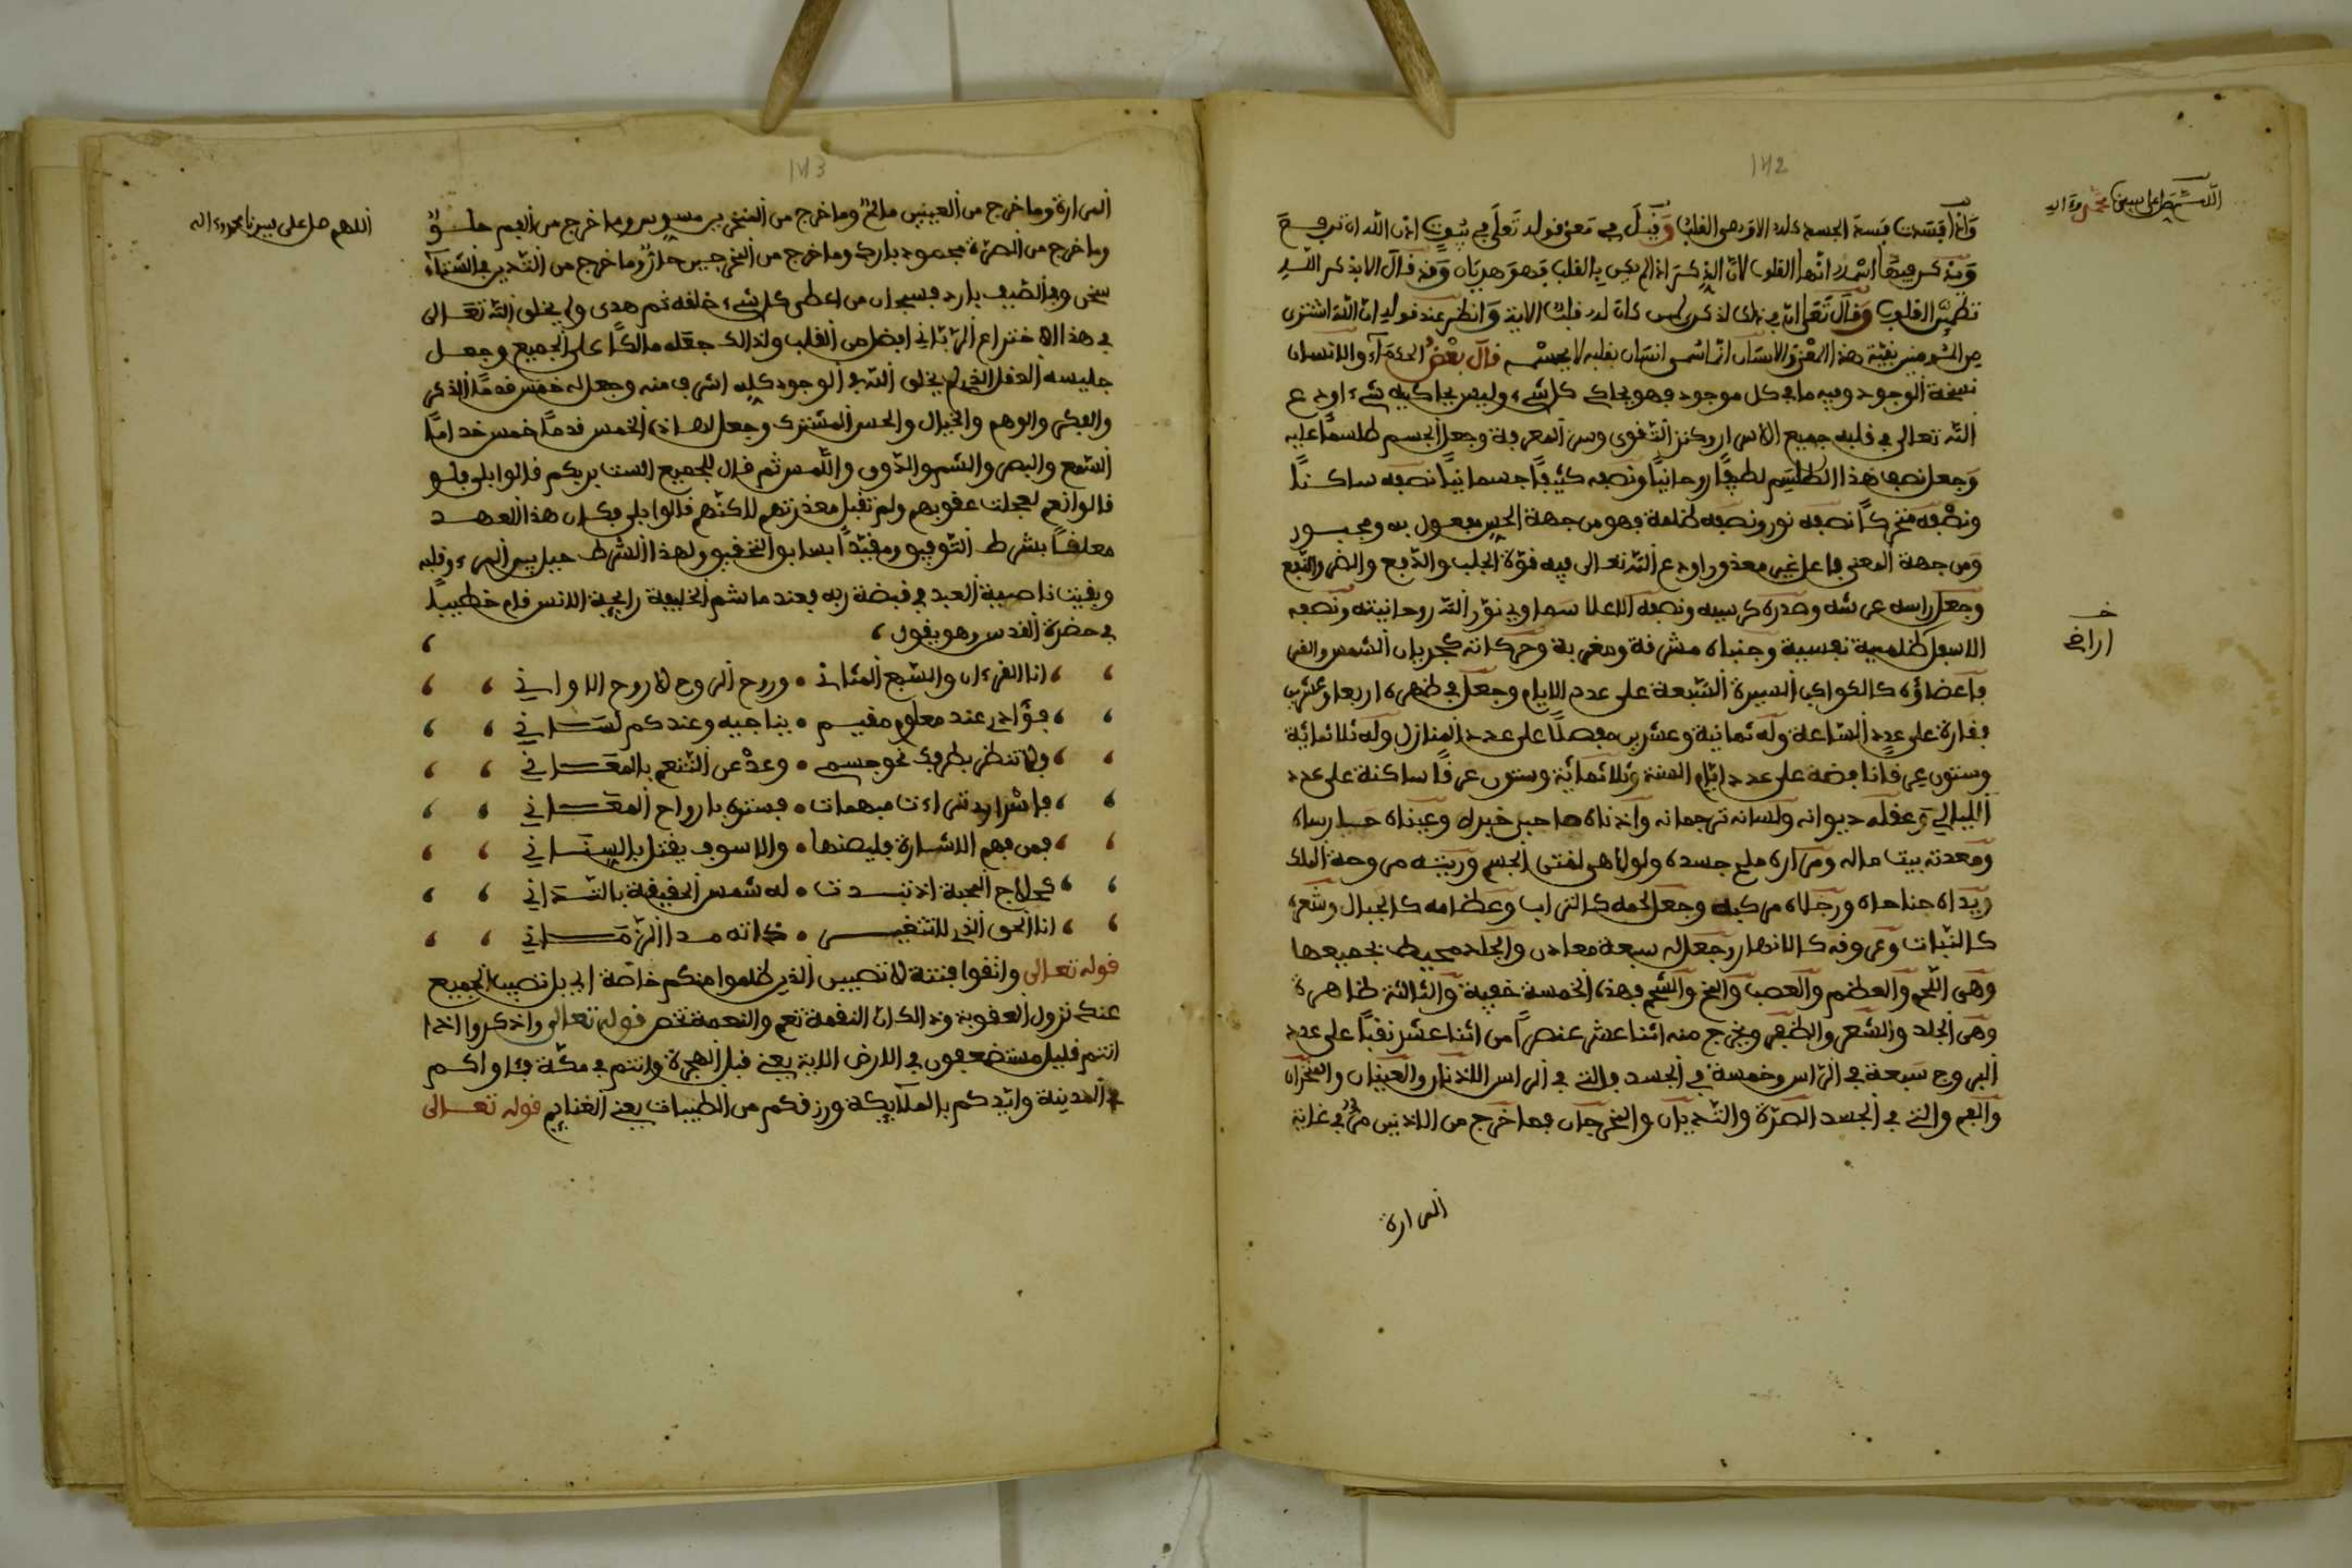 142
اللهم صل على سيدنا محمد وءاله
وَإذا فسَدت فسدَ الجسد كله الا وهي القلب وَقيلَ في مَعنى قوله تَعلَى في بُيُوتٍ اذن الله ان ترفعَ
وَيذكر فيها اسمه انها القلوب لأنّ الذكرَ اذا لم يكن بالقلب فهوَ هذيان وَقد قالَ الا بذكر الله
تطمئن القلوب وَقالَ تَعَلى ان في ذلك لذكرى لمن كان له قلب الاية وَانظر عند قوله ان الله اشترى
من المومنين بقيّة هذا المعنى والانسان انما سمي انسان بقلبه لا بجسمه قالَ بعْضُ الحكمَآء والانسان
نسخة الوجود وفيه ما في كل موجود فهو يحاكي كل شيء وليس يحاكيه شيء اودع
الله تعالى في قلبه جميع الاسرار وكنز التقوى وسر المعرفة وجعل الجسم طلسمًا عليه
وَجعل نصف هَذا الطلسَم لطيفًا روحانيًا ونصفه كثيفًا جسمانيًا نصفه ساكنًا
ونصْفه متحركًا نصفه نور ونصفه ظلمة فهو من جهة الحس مفعول به ومجبور
وَمن جهة المعنى فاعل غير معذور اودع الله تعالى فيه قوّة الجلب والدّفع والضر والنّفع
وجعَل راسه عرشه وصدره كرسيه ونصفه الاعلا سَماوي نوّر الله روحانيته ونصفه
خـ
اراضي
الاسفل ظلمية نفسية وجنباه مشرقة ومغربة وحركاته كجريان الشمس والقمر
فأعضاؤه كالكواكب السيرة السّبعة على عدد الايام وجعل في ظهره اربعا وعشرين
فقارة على عدد السّاعة وله ثمانية وعشرين مفصلًا على عدد المنازل وله ثلاثمائة
وستون عرقا نابضة على عدد ايّام السنة وثلاثمائة وستون عرقًا ساكنة على عدد
الليالي وَعقله ديوانه ولسانه ترجمانه وأذناه صاحبي خبره وعيناه حارساه
ومعدته بيت ماله ومرارة ملح جسده ولولا هي لفتى الجسم وريته مروحة الملك
ويداه جناحاه ورجلاه مركبه وجعل لحمه كالتراب وعظامه كالجبال وشعره
كالنبات وعروقه كالانهار وجعل له سبعة معادن والجلد محيط بجميعها
وهى اللّحم والعظم والعصب والمخ والشحم فهذه الخمسة خفية والثالثة ظاهرة
وهى الجلد والشعر والظفر ويخرج منه اثنا عشر عنصرًا من اثنا عشر نقبًا على عدد
البروج سَبعة في الرّاس وخمسة في الجسد فالتي في الراس الاذنان والعينان والمنخران
والفم والتي في الجسد الصرّة والثّديان والمخرجان فما خرج من الاذنين مرٌّ في غاية
المرارة
143
اللهم صل على سيدنا محمد وءاله
المرارة وما خرج من العينين مالحٌ وما خرج من المنخرين مسوس وما خرج من الفم حلوٌ
وما خرج من الصرّة مجمود بارد وما خرج من المخرجين حارٌ وما خرج من الثديين في الشتاء
سخن وفي الصّيف بارد فسبحان من اعطى كل شيء خلقه ثم هدى ولم يخلق الله تعَالى
في هذا الاختراع الرّبّاني افضل من القلب ولذلك جعَله مالكًا على الجميع وجعل
جليسه العقل الذي لم يخلق الله في الوجود كله اشرف منه وجعل له خمس قدمًا الذكر
والفكر والوهم والخيال والحس المشترك وجعل لهاذه الخمس قدمًا خمس خدامًا
السّمع والبصر والشم والذّوق واللّمس ثم قال للجميع الست بربكم قالوا بلى فلو
قالوا نعم لعجلت عقوبهم ولم تقبل معذرتهم لاكنّهم قالوا بلى فكان هذا العهد
معلقًا بشرط التّوفيق ومقيّدًا بسابق التحقيق ولهذا الشرط حيل بين المرء وقلبه
وبقيت ناصية العبد في قبضة ربه فعندما شم الخليفة رايحة الانس قام خطيبًا
في حضرة القدس وهو يقول ،
انا القرءان والسّبع المثاني • وروح الروح لا روح الاواني
فؤادي عند معلوم مقيم • يناجيه وعندكم لسَاني
ولا تنظر بطرفك نحو جسم • وعدْ عن التّنعم بالمغَاني
فاسْرار تراءت مبهمات • فستره بارواح المعَاني
فمن فهم الاشارة فليصنها • والا سوف يقتل بالسنَاني
كحلاج المحبة اذ تبدت • له شمس الحقيقة بالتّدَاني
انا الحق الذي لا تغير • ذاته مدا الزّمَاني
قوله تعالى واتقوا فتنة لا تصيبن الذين ظلموا منكم خاصّة اي بل تصيب الجميع
عند نزول العقوبة وذالك ان النقمة تعم والنعمة تخص قوله تعالى واذكروا اذا
انتم قليل مستضعفون في الارض الاية يعني قبل الهجرة وانتم في مكّة فئاواكم
في المدينة وايّدكم بالملآيكة ورزقكم من الطيبات يعني الغنايم قوله تعالى